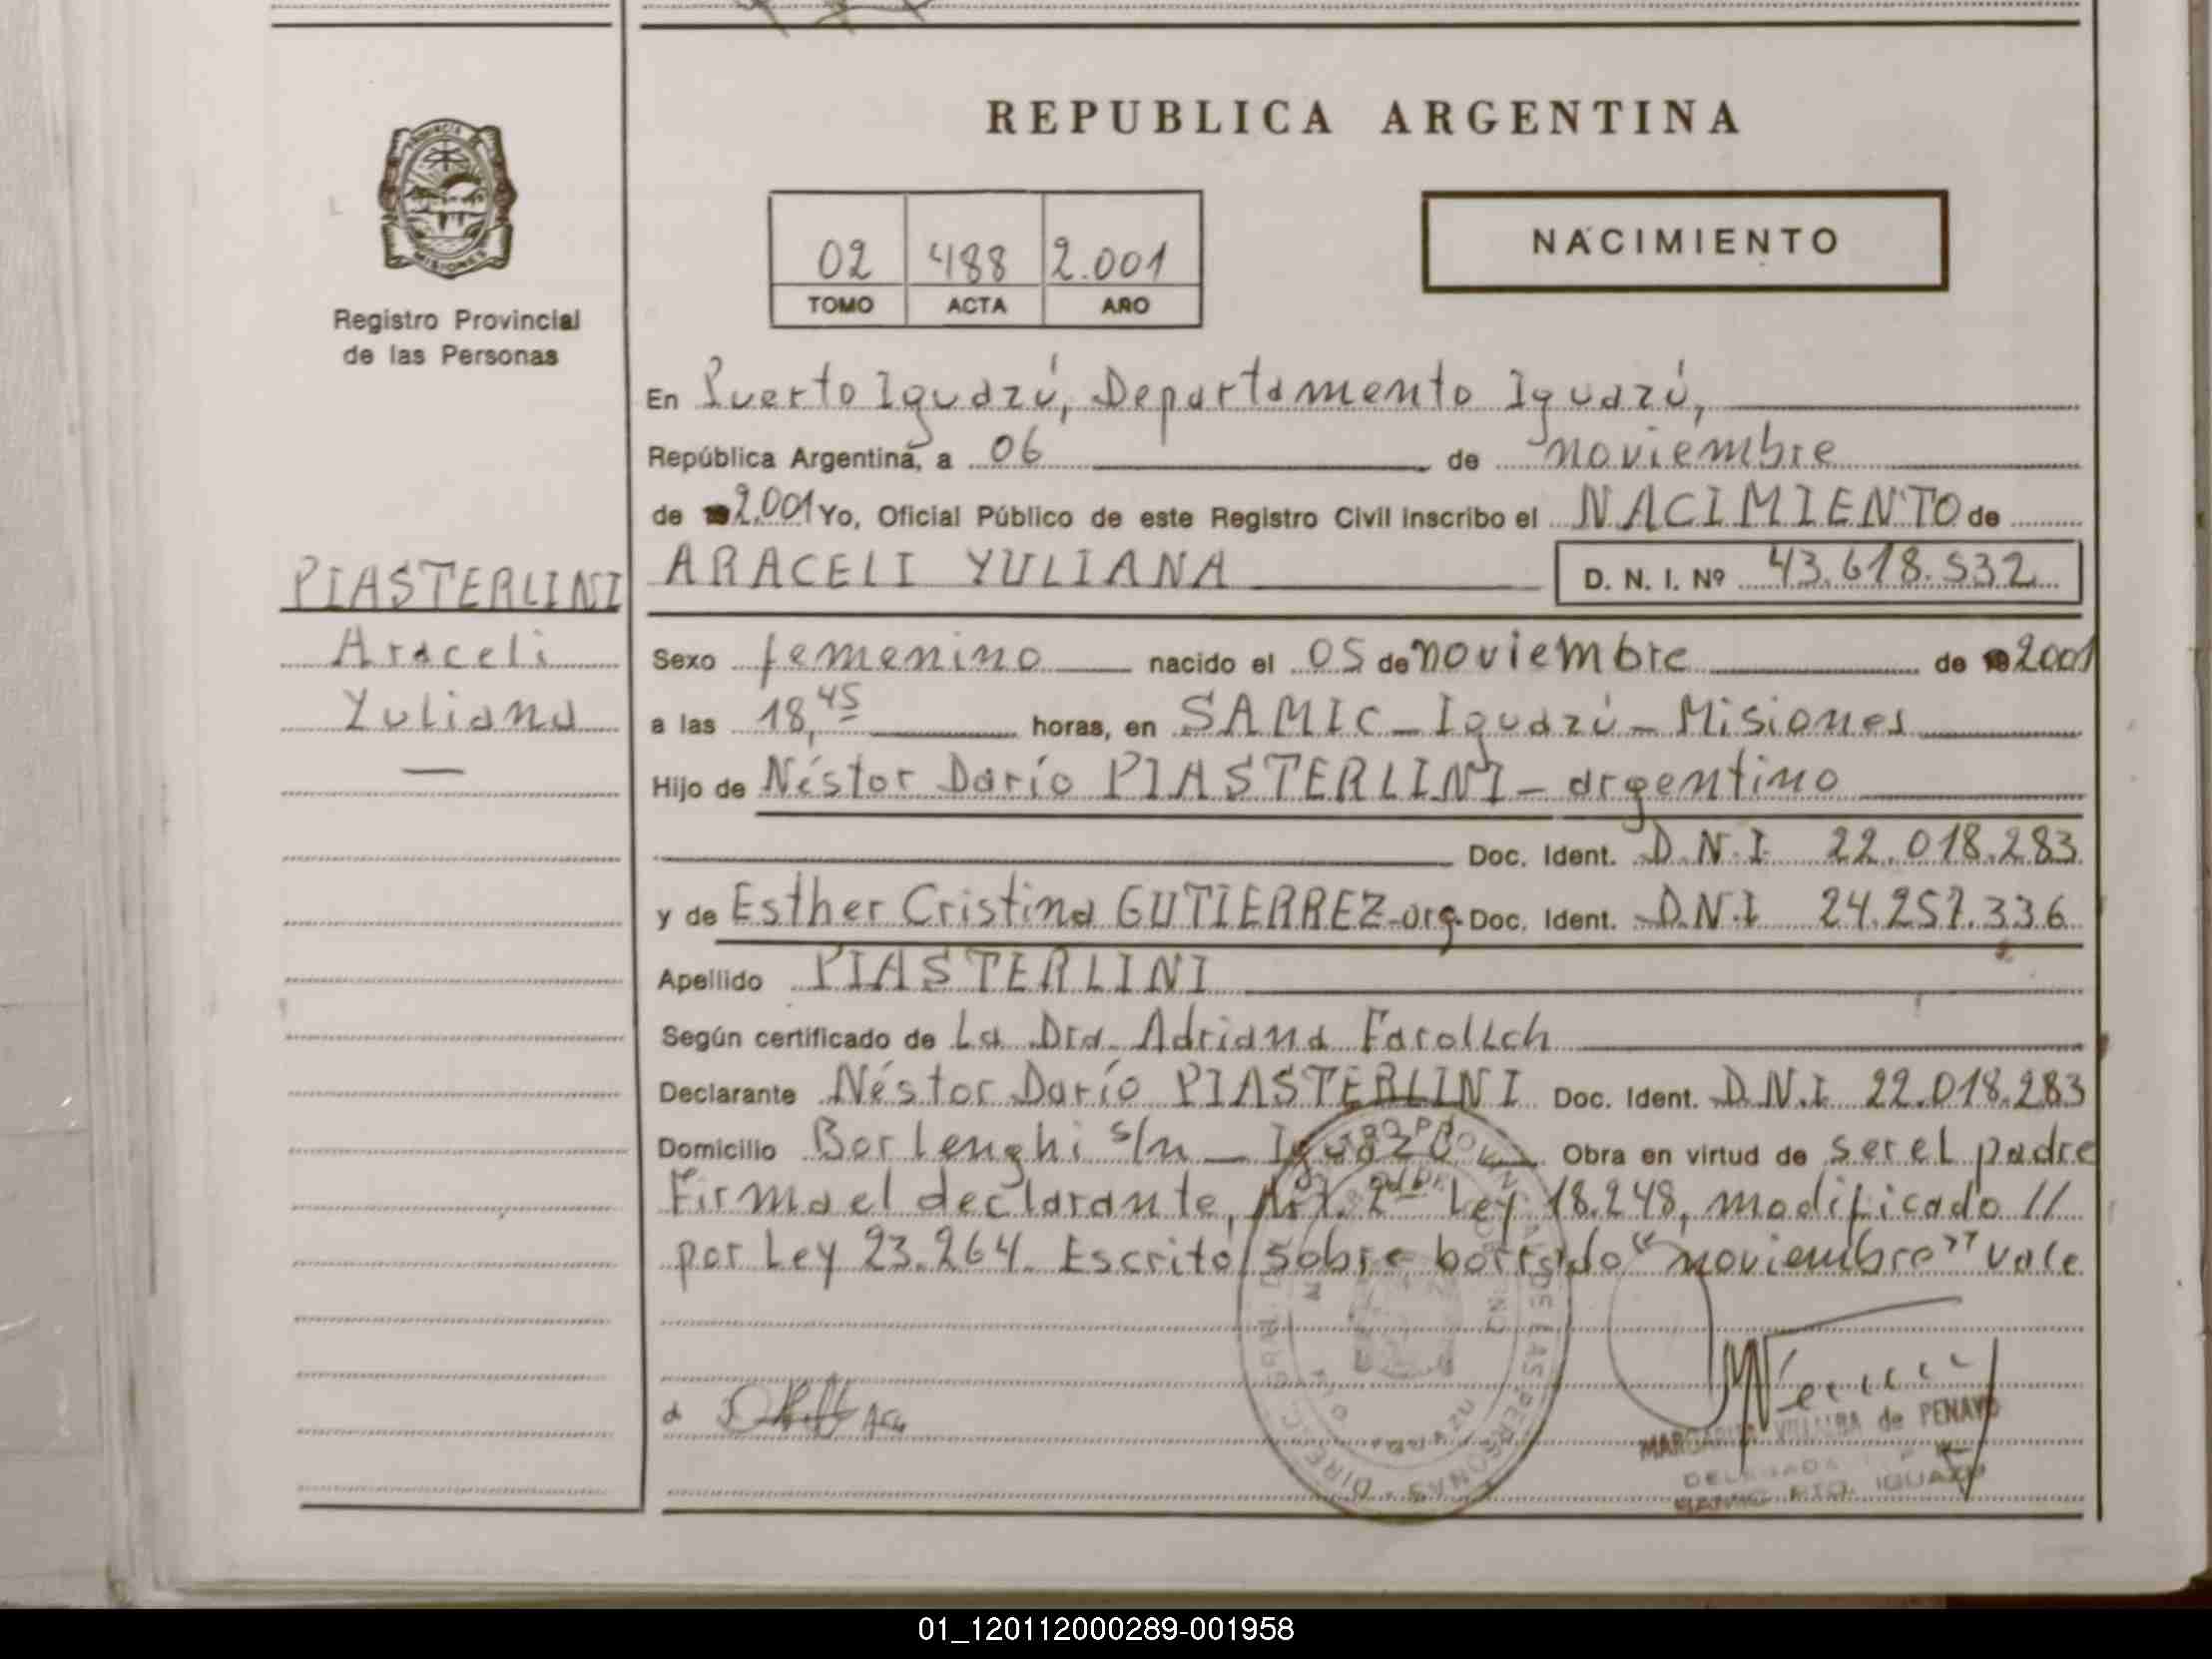 REPUBLICA ARGENTINA
PROVINCIA
MISIONES
Registro Provincial
de las Personas
02 488 2.001
TOMO ACTA AÑO
NACIMIENTO
En Puerto Iguazú, Departamento Iguazú,
República Argentina, a 06 de noviembre
de 2.001 Yo, Oficial Público de este Registro Civil inscribo el NACIMIENTO de
ARACELI YULIANA D. N. I. Nº 43.618.532
PIASTERLINI
Araceli
Yuliana
Sexo femenino nacido el 05 de noviembre de 2001
a las 18,45 horas, en SAMIC - Iguazú - Misiones
Hijo de Néstor Darío PIASTERLINI - argentino
Doc. Ident. D.N.I 22.018.283
y de Esther Cristina GUTIERREZ - arg. Doc. Ident. D.N.I 24.257.336
Apellido PIASTERLINI
Según certificado de La Dra. Adriana
Declarante Néstor Darío PIASTERLINI Doc. Ident. D.N.I 22.018.283
Domicilio Borlenghi s/n - Iguazú Obra en virtud de ser el padre
Firma el declarante, Art. 2do Ley 18.248, modificado //
por Ley 23.264. Escrito sobre borrado "noviembre" vale
MARGARITA VILLALBA de PENAYO
DELEGADA
PTO. IGUAZU
01_120112000289-001958